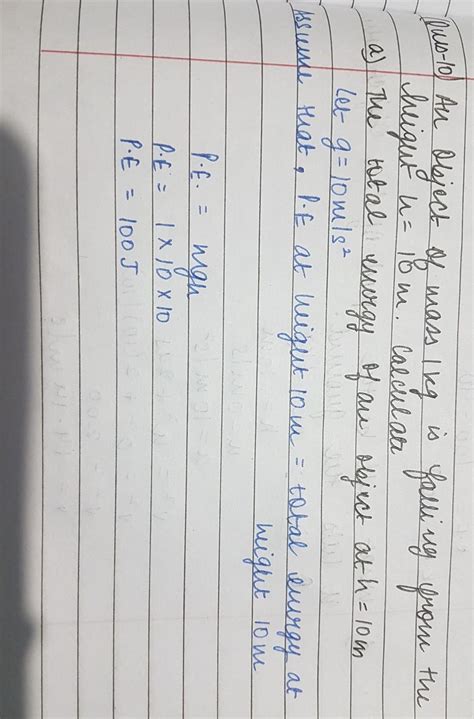 Ques-10) An object of mass 1 kg is falling from the
height h = 10 m. Calculate
a) The total energy of an object at h = 10m
Let g = 10 m/s²
Assume that, P.E at height 10 m = total energy at
height 10 m
P.E. = mgh
P.E = 1 × 10 × 10
P.E = 100 J